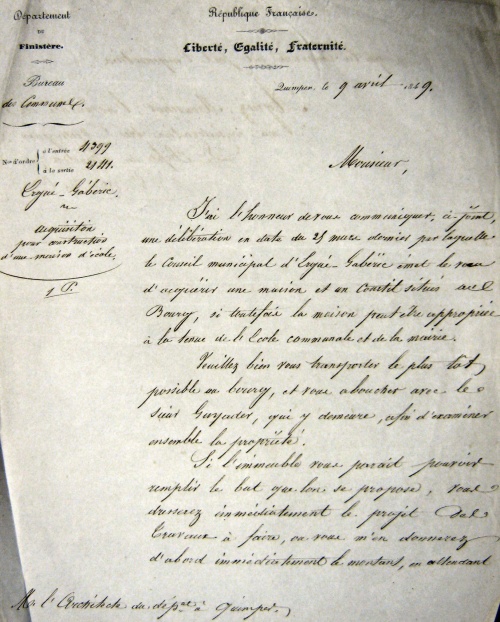 Département
DE
Finistère.
Bureau
des Communes.
Nos d'ordre
à l'entrée 4399
à la sortie 2141.
Ergué-Gabéric
acquisition
pour construction
d'une maison d'école.
1 P.
République Française.
Liberté, Egalité, Fraternité.
Quimper, le 9 avril 1849.
Monsieur,
J'ai l'honneur de vous communiquer, ci-joint
une délibération en date du 25 mars dernier par laquelle
le Conseil municipal d'Ergué-Gabéric émet le vœu
d'acquérir une maison et un Courtil situés au
Bourg, si toutefois la maison peut être appropriée
à la tenue de l'Ecole communale et de la mairie.
Veuillez bien vous transporter le plus tôt
possible au bourg, et vous aboucher avec le
sieur Guyader, qui y demeure, afin d'examiner
ensemble la propriété.
Si l'immeuble vous parait pouvoir
remplir le but que l'on se propose, vous
dresserez immédiatement le projet des
travaux à faire, ou vous m'en donnerez
d'abord immédiatement le montant, en attendant
Mr l'Architecte du dépet à Quimper.